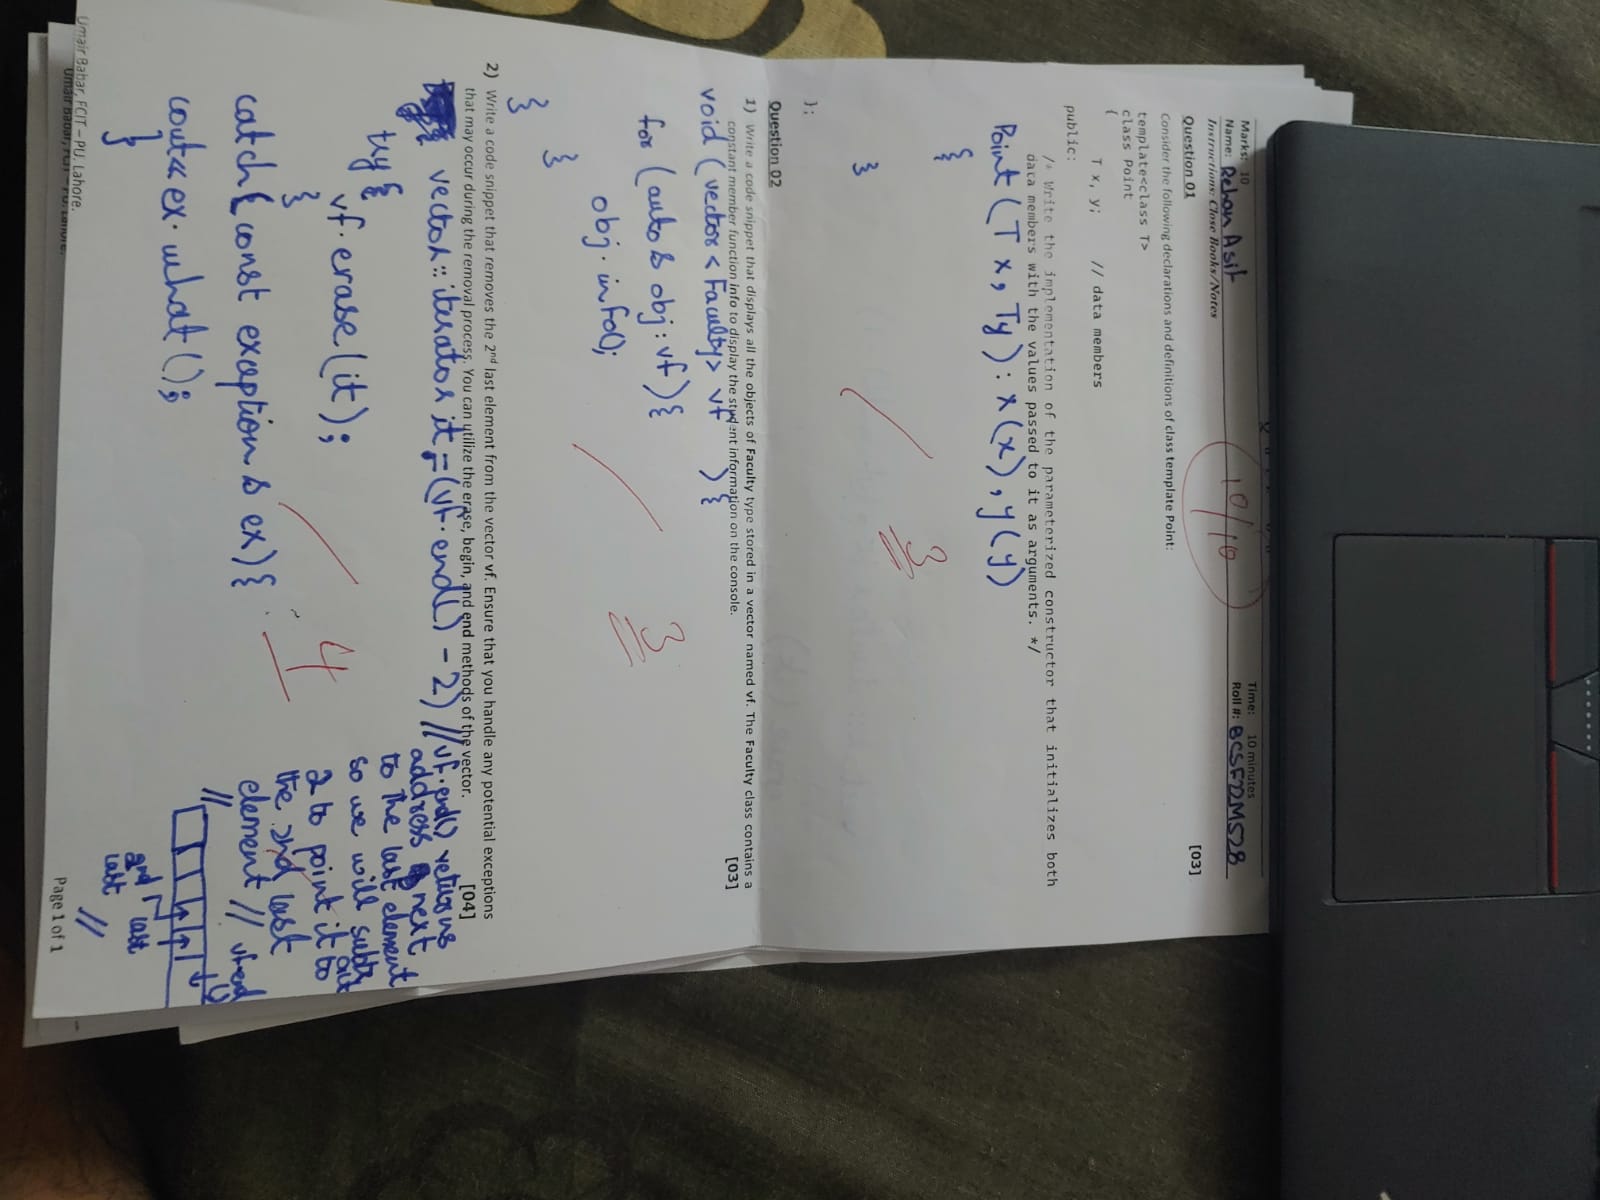 Marks: 10
Time: 10 minutes
Name: Rehan Asif
Roll #: BCSF22M528
Instructions: Close Books/Notes
10/10
Question 01
[03]
Consider the following declarations and definitions of class template Point:
template<class T>
class Point
{
T x, y; // data members
public:
/* Write the implementation of the parameterized constructor that initializes both
data members with the values passed to it as arguments. */
Point(T x, T y): x(x), y(y)
{
3
}
};
Question 02
1) Write a code snippet that displays all the objects of Faculty type stored in a vector named vf. The Faculty class contains a
constant member function info to display the student information on the console.
[03]
void (vector < Faculty> vf ){
for (auto & obj : vf){
obj. info();
3
}
}
2) Write a code snippet that removes the 2nd last element from the vector vf. Ensure that you handle any potential exceptions
that may occur during the removal process. You can utilize the erase, begin, and end methods of the vector.
[04]
vector :: iterator it = (vf. end() - 2) // vf.end() returns
address next
to the last element
so we will subtract
2 to point it to
the 2nd last
element //
try {
vf. erase(it);
}
4
catch( const exception & ex) {
cout<< ex. what();
}
vf.end
//
2nd last
last
//
Page 1 of 1
Umair Babar, FCIT – PU. Lahore.